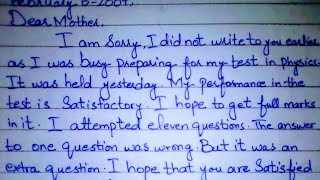 February 6-2009.
Dear Mother,
I am Sorry, I did not write to you earlier
as I was busy preparing for my test in physics.
It was held yesterday. My performance in the
test is Satisfactory. I hope to get full marks
in it. I attempted eleven questions. The answer
to one question was wrong. But it was an
extra question. I hope that you are Satisfied